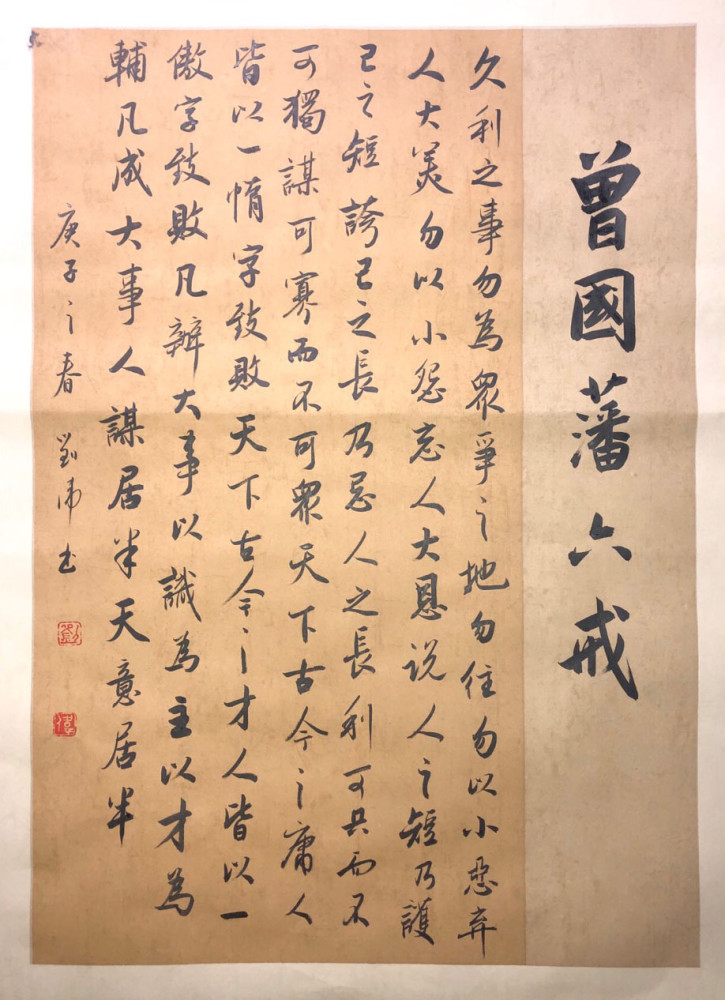 曾國藩六戒
久利之事勿為眾爭之地勿往勿以小惡弃
人大美勿以小怨忘人大恩说人之短乃護
己之短誇己之長乃忌人之長利可共而不
可獨謀可寡而不可眾天下古今之庸人
皆以一惰字致敗天下古今之才人皆以一
傲字致敗凡辦大事以識為主以才為
輔凡成大事人謀居半天意居半
庚子之春 劉沛书